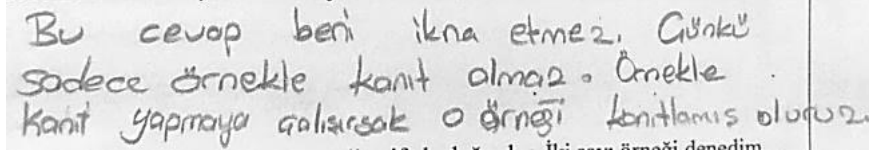 Bu cevap beni ikna etmez. Günkü
sadece örnekle kanıt olmaz. Örnekle
kanıt yapmaya çalışırsak o örneği kanıtlamış oluruz.
İki sayı örneği denedim